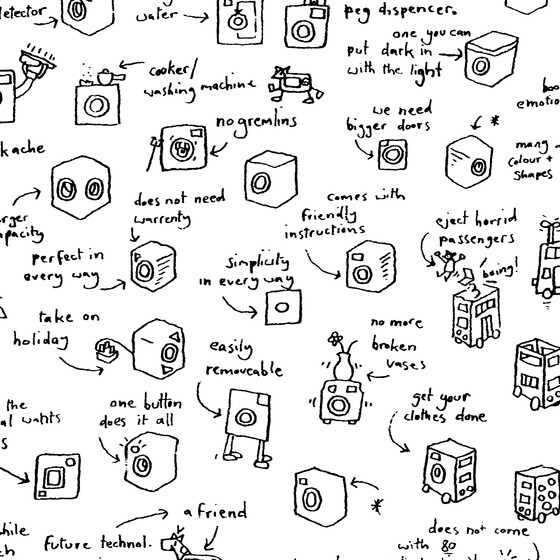 detector
water
peg dispenser.
one you can
put dark in
with the light
cooker/
washing machine
no gremlins
we need
bigger doors
*
many
colour +
shapes
emotio
ache
does not need
warrenty
comes with
friendly
instructions
eject horrid
passengers
boing!
apacity
perfect in
every way
simplicity
in every way
take on
holiday
easily
removeable
no more
broken
vases
get your
clothes done
the
wants
s
one button
does it all
*
a friend
future technol.
does not come
with 80